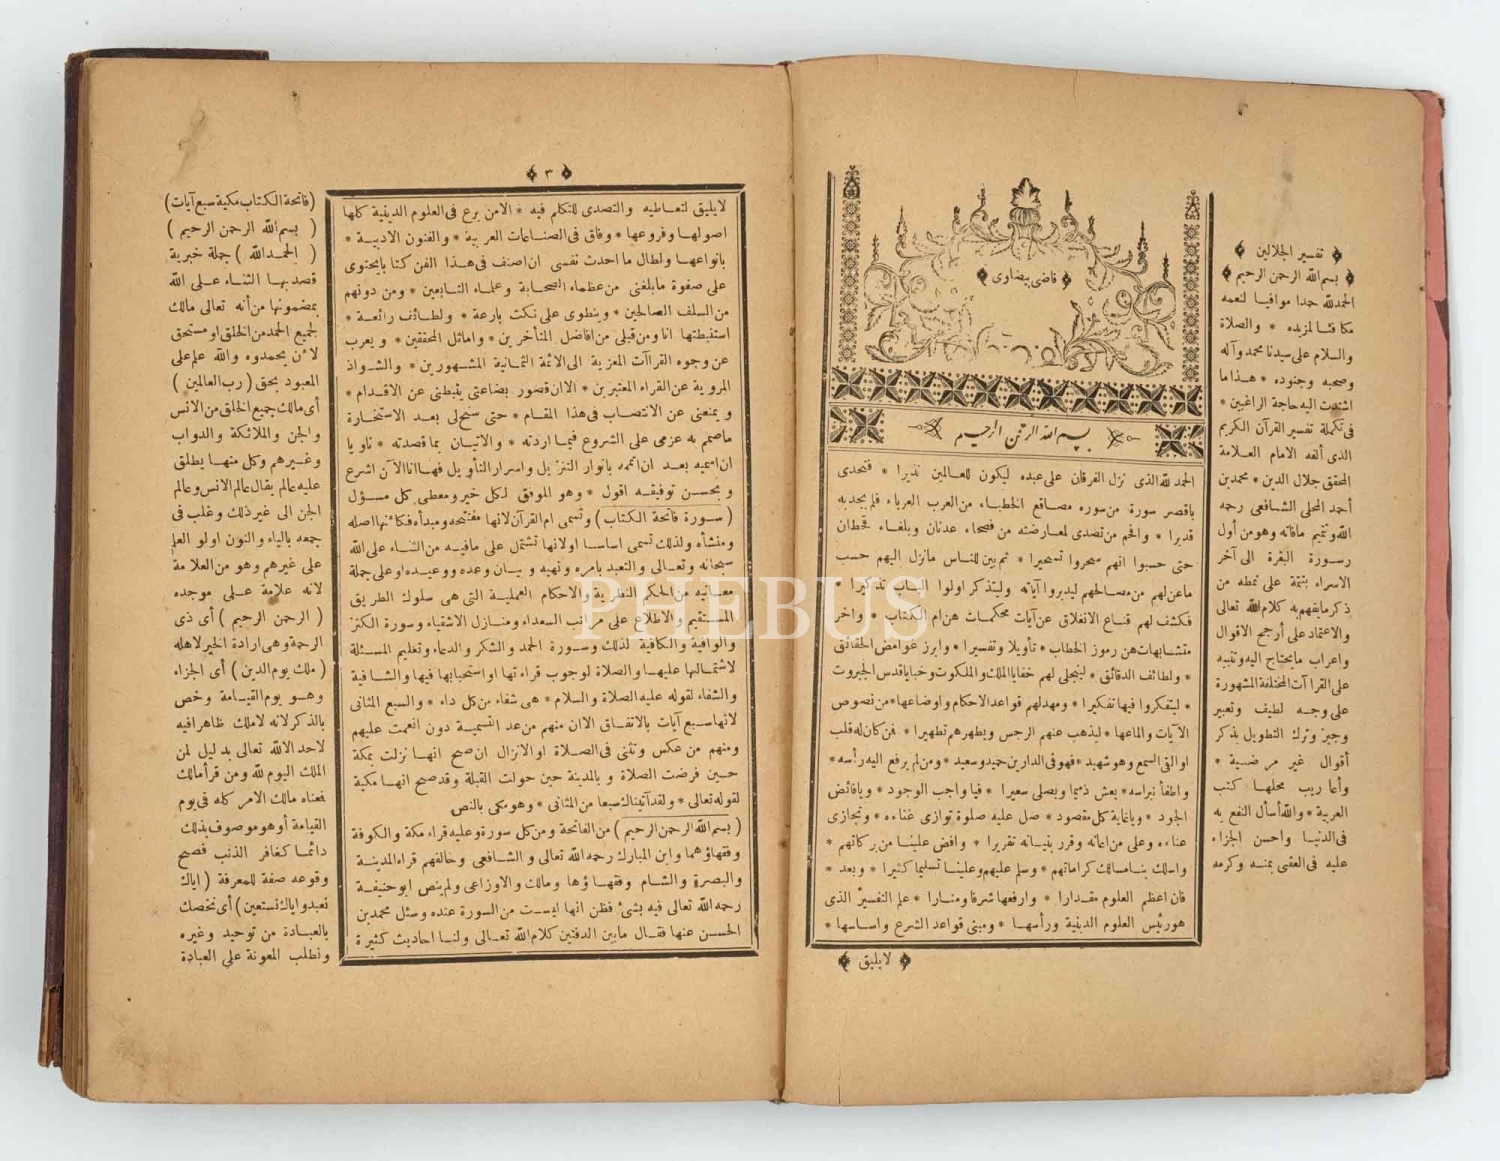 ﴿ قاضی بیضاوی ﴾
بسم الله الرحمن الرحيم
الحمد لله الذى نزل الفرقان على عبده ليكون للعالمين نذيرا * فتحدى
باقصر سورة من سوره مصاقع الخطباء من العرب العرباء فلم يجد به
قديرا * وافحم من تصدى لمعارضته من فصحاء عدنان وبلغاء قحطان
حتى حسبوا انهم سحروا تسحيرا * ثم بين للناس مانزل اليهم حسب
ماعن لهم من مصالحهم ليدبروا آياته وليتذكر اولوا الالباب تذكيرا *
فكشف لهم قناع الانغلاق عن آيات محكمات هن ام الكتاب * واخر
متشابهات هن رموز الخطاب * تأويلا وتفسيرا * وابرز غوامض الحقائق
* ولطائف الدقائق * ليتجلى لهم خفايا الملك والملكوت وخبايا قدس الجبروت
* ليتفكروا فيها تفكيرا * ومهد لهم قواعد الاحكام واوضاعها * من نصوص
الآيات والماعها * ليذهب عنهم الرجس ويطهرهم تطهيرا * فن كان له قلب
او القى السمع وهو شهيد * فهو فى الدارين حميد وسعيد * ومن لم يرفع اليه رأسه *
واطفأ نبراسه * يعش ذميما ويصلى سعيرا * فيا واجب الوجود * ويا فائض
الجود * ويا غاية كل مقصود * صل عليه صلوة توازى غناءه * وتجازى
عناءه * وعلى من اعانه وقرر بنيانه تقريرا * وافض علينا من بركاتهم *
واسلك بنا مسالك كراماتهم * وسلم عليهم وعلينا تسليما كثيرا * وبعد *
فان اعظم العلوم مقدارا * وارفعها شرفا ومنارا * علم التفسير الذى
هو رئيس العلوم الدينية ورأسها * ومبنى قواعد الشرع واساسها *
﴿ لايليق ﴾
﴿ تفسير الجلالين ﴾
﴿ بسم الله الرحمن الرحيم ﴾
الحمد لله حمدا موافيا لنعمه
مكافئا لمزيده * والصلاة
والسلام على سيدنا محمد وآله
وصحبه وجنوده * هذا ما
اشتدت اليه حاجة الراغبين *
فى تكملة تفسير القرآن الكريم
الذى ألفه الامام العلامة
المحقق جلال الدين * محمد بن
أحمد المحلى الشافعى رحمه
الله وتتميم مافاته وهو من أول
سورة البقرة الى آخر
الاسراء بتتمة على نمطه من
ذكر مايفهم به كلام الله تعالى
والاعتماد على أرجح الاقوال
واعراب مايحتاج اليه وتنبيه
على القراآت المختلفة المشهورة
على وجه لطيف وتعبير
وجيز وترك التطويل بذكر
أقوال غير مرضية *
وأعاريب محلها كتب
العربية * والله أسأل النفع به
فى الدنيا واحسن الجزاء
عليه فى العقبى بمنه وكرمه
﴿ ٣ ﴾
لايليق لتعاطيه والتصدى للتكلم فيه * الا من برع فى العلوم الدينية كلها
اصولها وفروعها * وفاق فى الصناعات العربية * والفنون الادبية *
بانواعها ولطال ما احدث نفسى ان اصنف فى هذا الفن كتابا يحتوى
على صفوة مابلغنى من عظماء الصحابة وعلماء التابعين * ومن دونهم
من السلف الصالحين * وينطوى على نكت بارعة * ولطائف رائعة *
استنبطتها انا ومن قبلى من افاضل المتأخرين * واماثل المحققين * ويعرب
عن وجوه القراآت المعزية الى الائمة الثمانية المشهورين * والشواذ
المروية عن القراء المعتبرين * الا ان قصور بضاعتى يثبطنى عن الاقدام *
ويمنعنى عن الانتصاب فى هذا المقام * حتى سنح لى بعد الاستخارة
ماصمم به عزمى على الشروع فيما اردته * والاتيان بما قصدته * ناويا
ان اسميه بعد ان اتممه بانوار التنزيل واسرار التأويل فها انا الآن اشرع
وبحسن توفيقه اقول * وهو الموفق لكل خير ومعطى كل مسؤل
( سورة فاتحة الكتاب ) وتسمى ام القرآن لانها مفتتحه ومبدأه فكأنها اصله
ومنشأه ولذلك تسمى اساسا اولانها تشتمل على مافيه من الثناء على الله
سبحانه وتعالى والتعبد بامره ونهيه وبيان وعده ووعيده او على جملة
معانيه من الحكم النظرية والاحكام العملية التى هى سلوك الطريق
المستقيم والاطلاع على مراتب السعداء ومنازل الاشقياء وسورة الكنز
والوافية والكافية لذلك وسورة الحمد والشكر والدعاء وتعليم المسئلة
لاشتمالها عليها والصلاة لوجوب قراءتها او استحبابها فيها والشافية
والشفاء لقوله عليه الصلاة والسلام * هى شفاء من كل داء * والسبع المثانى
لانها سبع آيات بالاتفاق الا ان منهم من عد التسمية دون انعمت عليهم
ومنهم من عكس وتثنى فى الصلاة او الانزال ان صح انها نزلت بمكة
حين فرضت الصلاة وبالمدينة حين حولت القبلة وقد صح انها مكية
لقوله تعالى * ولقد آتيناك سبعا من المثانى * وهو مكى بالنص
( بسم الله الرحمن الرحيم ) من الفاتحة ومن كل سورة وعليه قراء مكة والكوفة
وفقهاؤهما وابن المبارك رحمه الله تعالى والشافعى وخالفهم قراء المدينة
والبصرة والشام وفقهاؤها ومالك والاوزاعى ولم ينص ابو حنيفة
رحمه الله تعالى فيه بشئ فظن انها ليست من السورة عنده وسئل محمد بن
الحسن عنها فقال مابين الدفتين كلام الله تعالى ولنا احاديث كثيرة
( فاتحة الكتاب مكية سبع آيات )
( بسم الله الرحمن الرحيم )
( الحمد لله ) جملة خبرية
قصد بها الثناء على الله
بمضمونها من أنه تعالى مالك
لجميع الحمد من الخلق او مستحق
لان يحمدوه والله علم على
المعبود بحق ( رب العالمين )
أى مالك جميع الخلق من الانس
والجن والملائكة والدواب
وغيرهم وكل منها يطلق
عليه عالم يقال عالم الانس وعالم
الجن الى غير ذلك وغلب فى
جمعه بالياء والنون اولو العلم
على غيرهم وهو من العلامة
لانه علامة على موجده
( الرحمن الرحيم ) أى ذى
الرحمة وهى ارادة الخير لاهله
( ملك يوم الدين ) أى الجزاء
وهو يوم القيامة وخص
بالذكر لانه لاملك ظاهرا فيه
لاحد الا لله تعالى بدليل لمن
الملك اليوم لله ومن قرأ مالك
فمعناه مالك الامر كله فى يوم
القيامة أو هو موصوف بذلك
دائما كغافر الذنب فصح
وقوعه صفة للمعرفة ( اياك
نعبد واياك نستعين ) أى نخصك
بالعبادة من توحيد وغيره
ونطلب المعونة على العبادة
PHEBUS